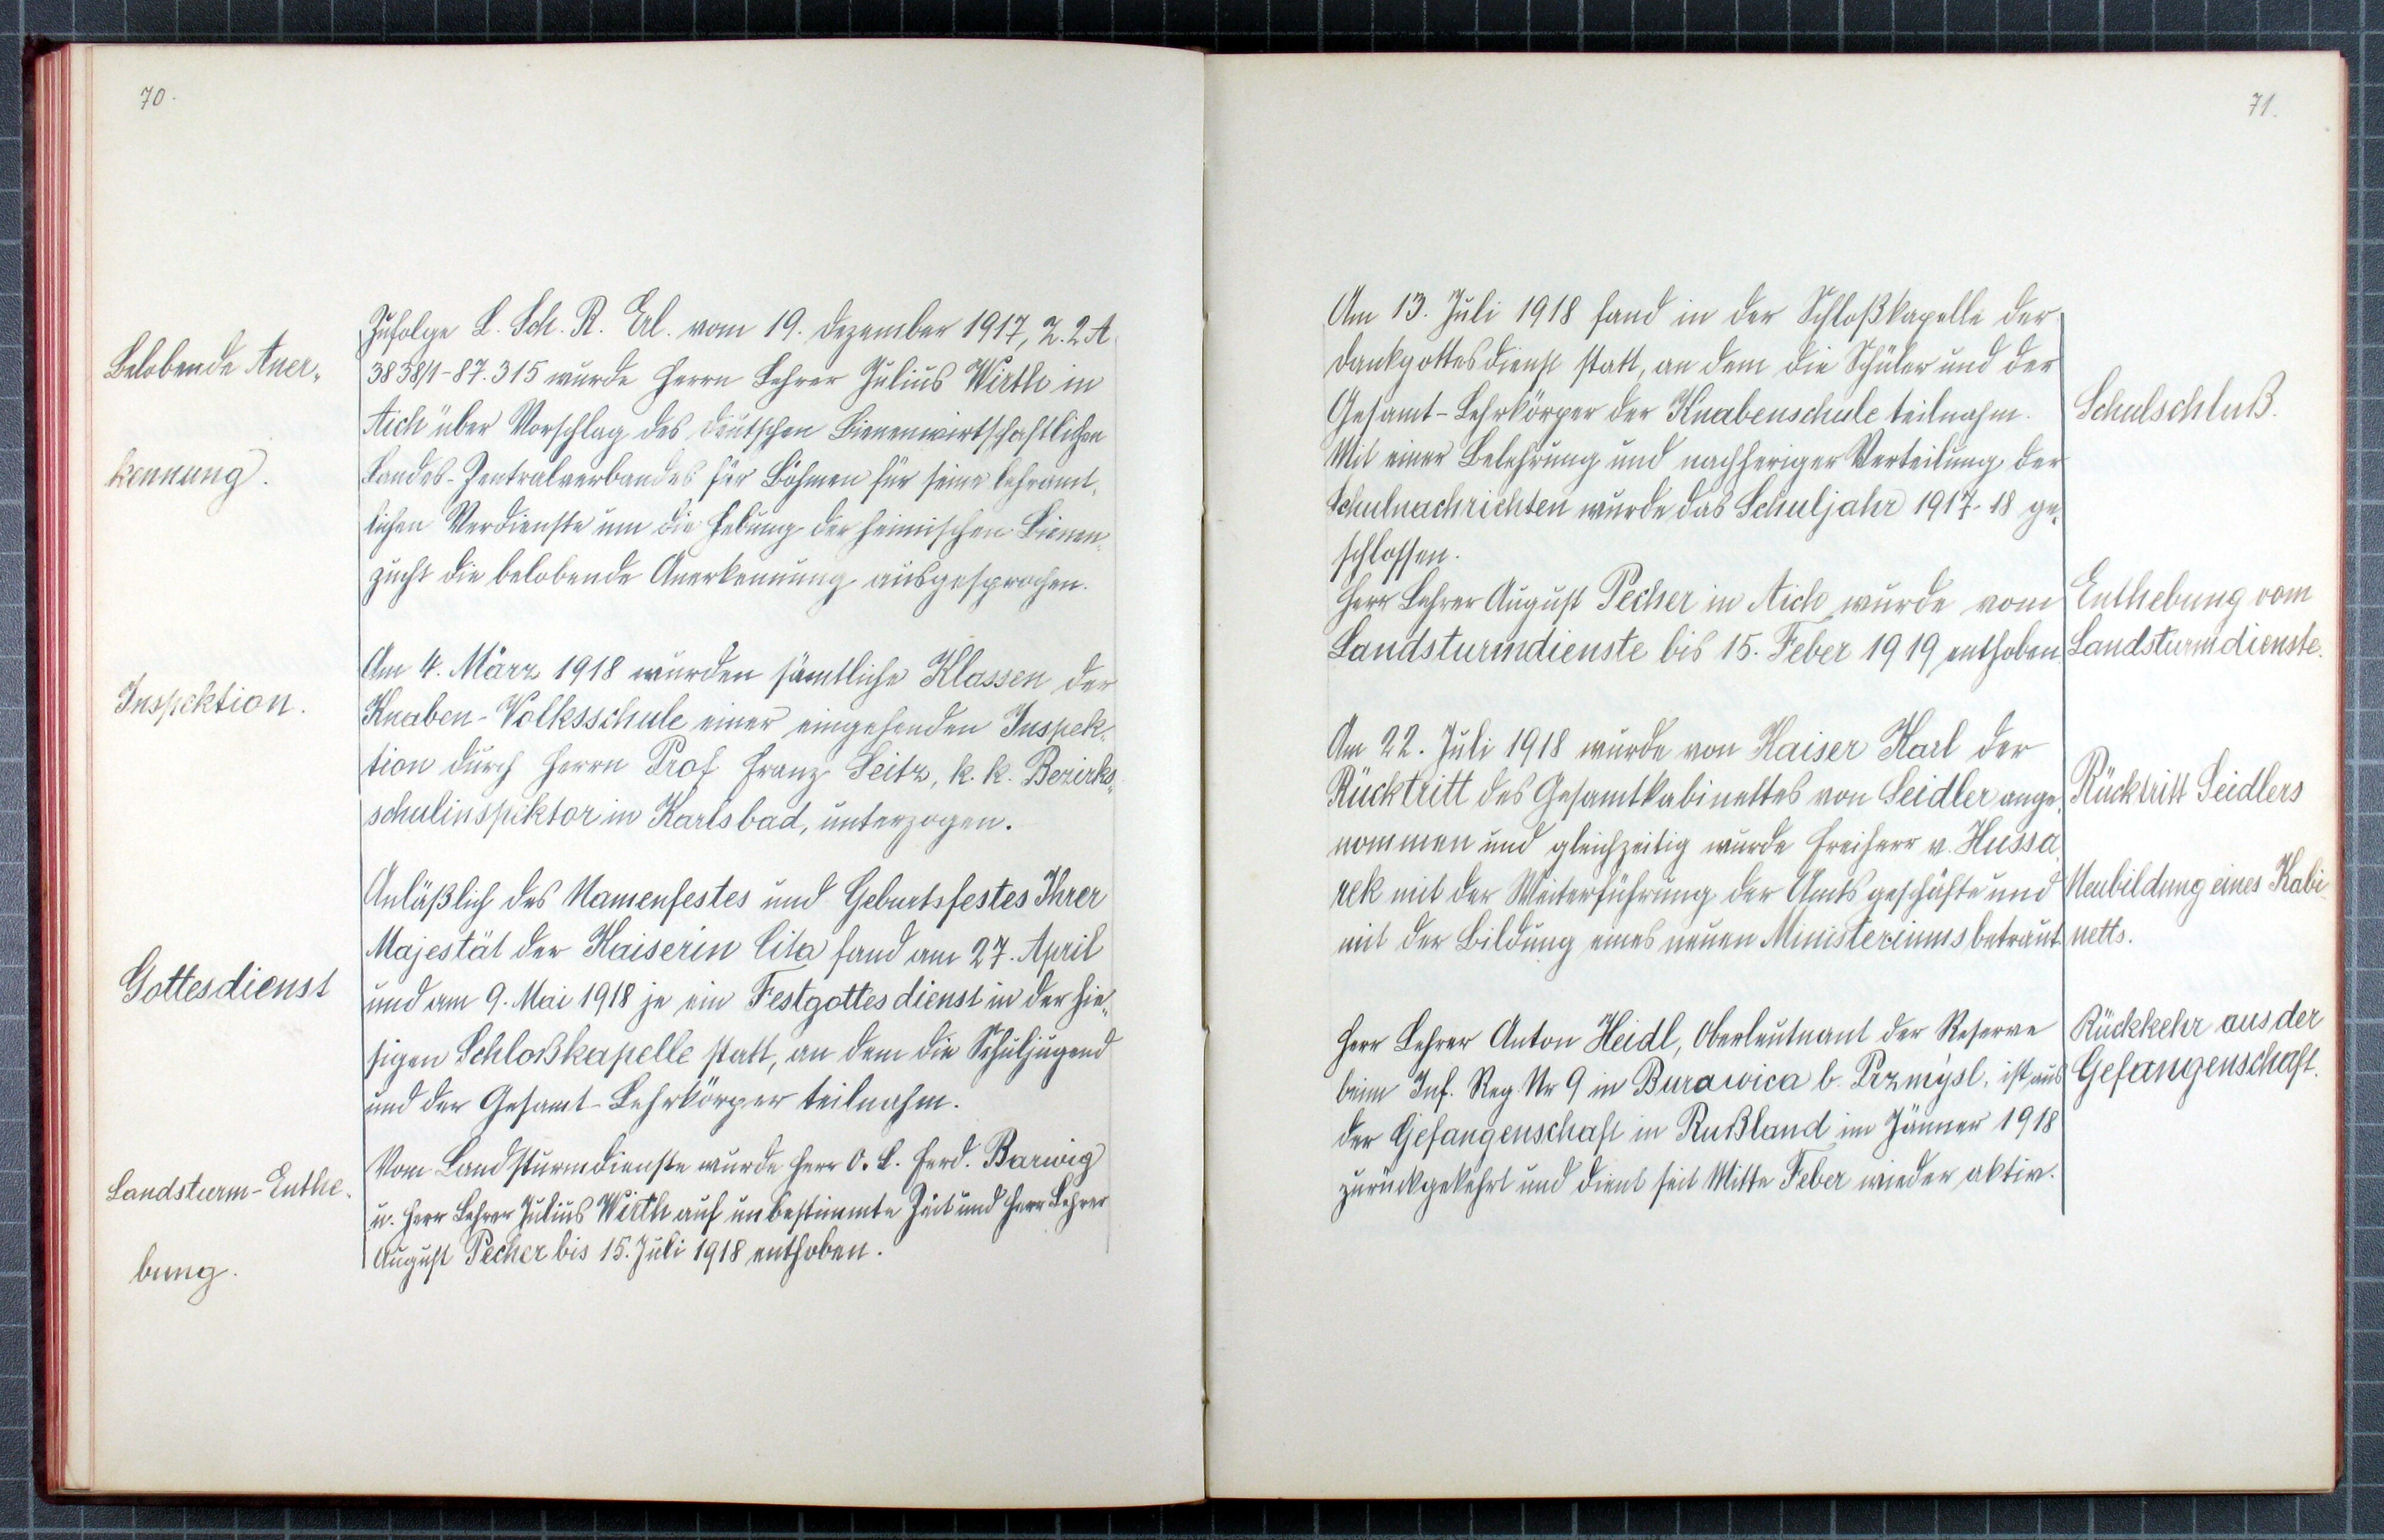 70.
Belobende Aner„
kennung.
Zufolge L. Sch. R. Erl. vom 19. Dezember 1917, Z. 2 A
3838/1-87.315 wurde Herrn Lehrer Julius Wirth in
Aich über Vorschlag des deutschen Bienenwirtschaftlichen
Landes-Zentralverbandes für Böhmen für seine lehramt„
lichen Verdienste um die Hebung der heimischen Bienen„
zucht die belobende Anerkennung ausgesprochen.
Inspektion.
Am 4. März 1918 wurden sämtliche Klassen der
Knaben-Volksschule einer eingehenden Inspek„
tion durch Herrn Prof Franz Seitz, k. k. Bezirks„
schulinspektor in Karlsbad, unterzogen.
Gottesdienst
Anläßlich des Namenfestes und Geburtsfestes Ihrer
Majestät der Kaiserin Cita fand am 27. April
und am 9. Mai 1918 je ein Festgottesdienst in der hie„
sigen Schloßkapelle statt, an dem die Schuljugend
und der Gesamt-Lehrkörper teilnahm.
Landsturm-Enthe„
bung.
Vom Landsturmdienste wurde Herr O. L. Ferd. Barwig
u. Herr Lehrer Julius Wirth auf unbestimmte Zeit und Herr Lehrer
August Pecher bis 15. Juli 1918 enthoben.
71.
Am 13. Juli 1918 fand in der Schloßkapelle der
Dankgottesdienst statt, an dem die Schüler und der
Gesamt-Lehrkörper der Knabenschule teilnahm.
Mit einer Belehrung und nachheriger Verteilung der
Schulnachrichten wurde das Schuljahr 1917-18 ge„
schlossen.
Schulschluß.
Herr Lehrer August Pecher in Aich wurde vom
Landsturmdienste bis 15. Feber 1919 enthoben.
Enthebung vom
Landsturmdienste.
Am 22. Juli 1918 wurde von Kaiser Karl der
Rücktritt des Gesamtkabinettes von Seidler ange„
nommen und gleichzeitig wurde Freiherr v. Hussa„
rek mit der Weiterführung der Amtsgeschäfte und
mit der Bildung eines neuen Ministeriums betraut.
Rücktritt Seidlers
Neubildung eines Kabi„
netts.
Herr Lehrer Anton Heidl, Oberleutnant der Reserve
beim Inf. Reg. Nr 9 in Burawica b. Przmýsl, ist aus
der Gefangenschaft in Rußland im Jänner 1918
zurückgekehrt und dient seit Mitte Feber wieder aktiv.
Rückkehr aus der
Gefangenschaft.